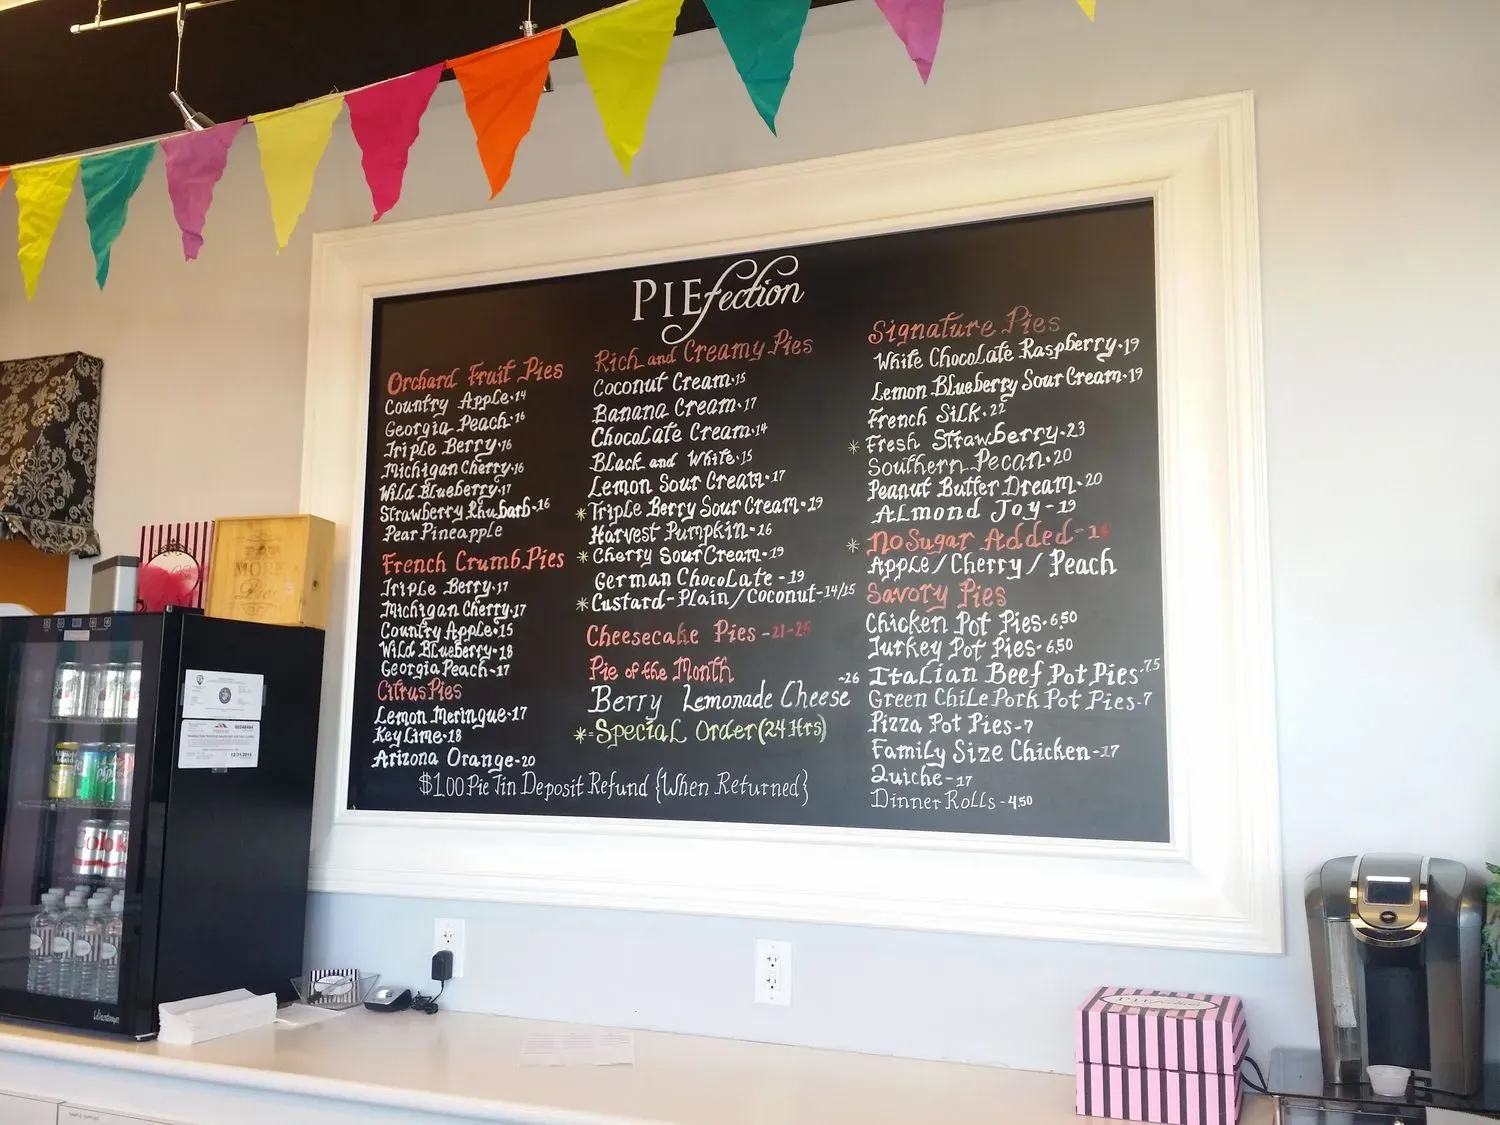 PIEfection
Orchard Fruit Pies
Country Apple·14
Georgia Peach·16
Triple Berry·16
Michigan Cherry·16
Wild Blueberry·17
Strawberry Rhubarb·16
Pear Pineapple
French Crumb Pies
Triple Berry·17
Michigan Cherry·17
Country Apple·15
Wild Blueberry·18
Georgia Peach-17
Citrus Pies
Lemon Meringue·17
Key Lime·18
Arizona Orange-20
Rich and Creamy Pies
Coconut Cream·15
Banana Cream·17
Chocolate Cream·14
Black and White·15
Lemon Sour Cream·17
*Triple Berry Sour Cream·19
Harvest Pumpkin·16
*Cherry Sour Cream·19
German Chocolate-19
*Custard-Plain/Coconut-14/15
Cheesecake Pies-21-25
Pie of the Month
Berry Lemonade Cheese -26
*=Special Order(24 Hrs)
$1.00 Pie Tin Deposit Refund {When Returned}
Signature Pies
White Chocolate Raspberry·19
Lemon Blueberry Sour Cream·19
French Silk·22
*Fresh Strawberry·23
Southern Pecan·20
Peanut Butter Dream·20
Almond Joy-19
*No Sugar Added-
Apple/Cherry/Peach
Savory Pies
Chicken Pot Pies·6.50
Turkey Pot Pies·6.50
Italian Beef Pot Pies·7.5
Green Chile Pork Pot Pies-7
Pizza Pot Pies-7
Family Size Chicken-17
Quiche-17
Dinner Rolls-4.50
MORE
Pie